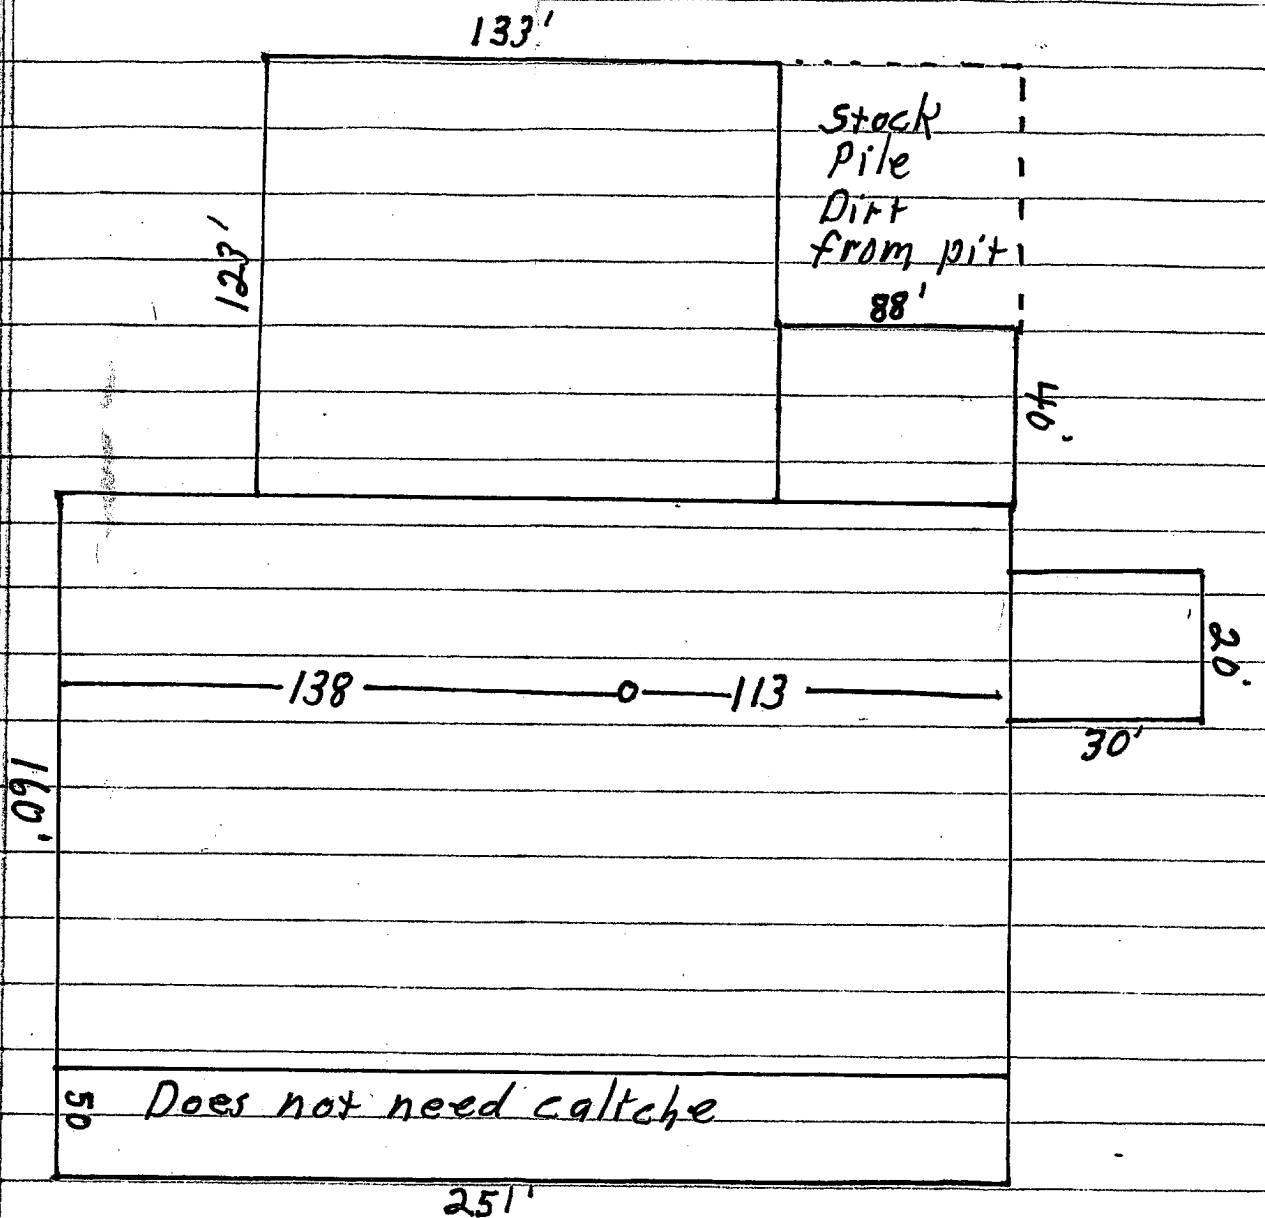 133'
Stock
Pile
Dirt
from pit
123'
88'
40'
20'
138 113
30'
160'
50 Does not need caltche
251'